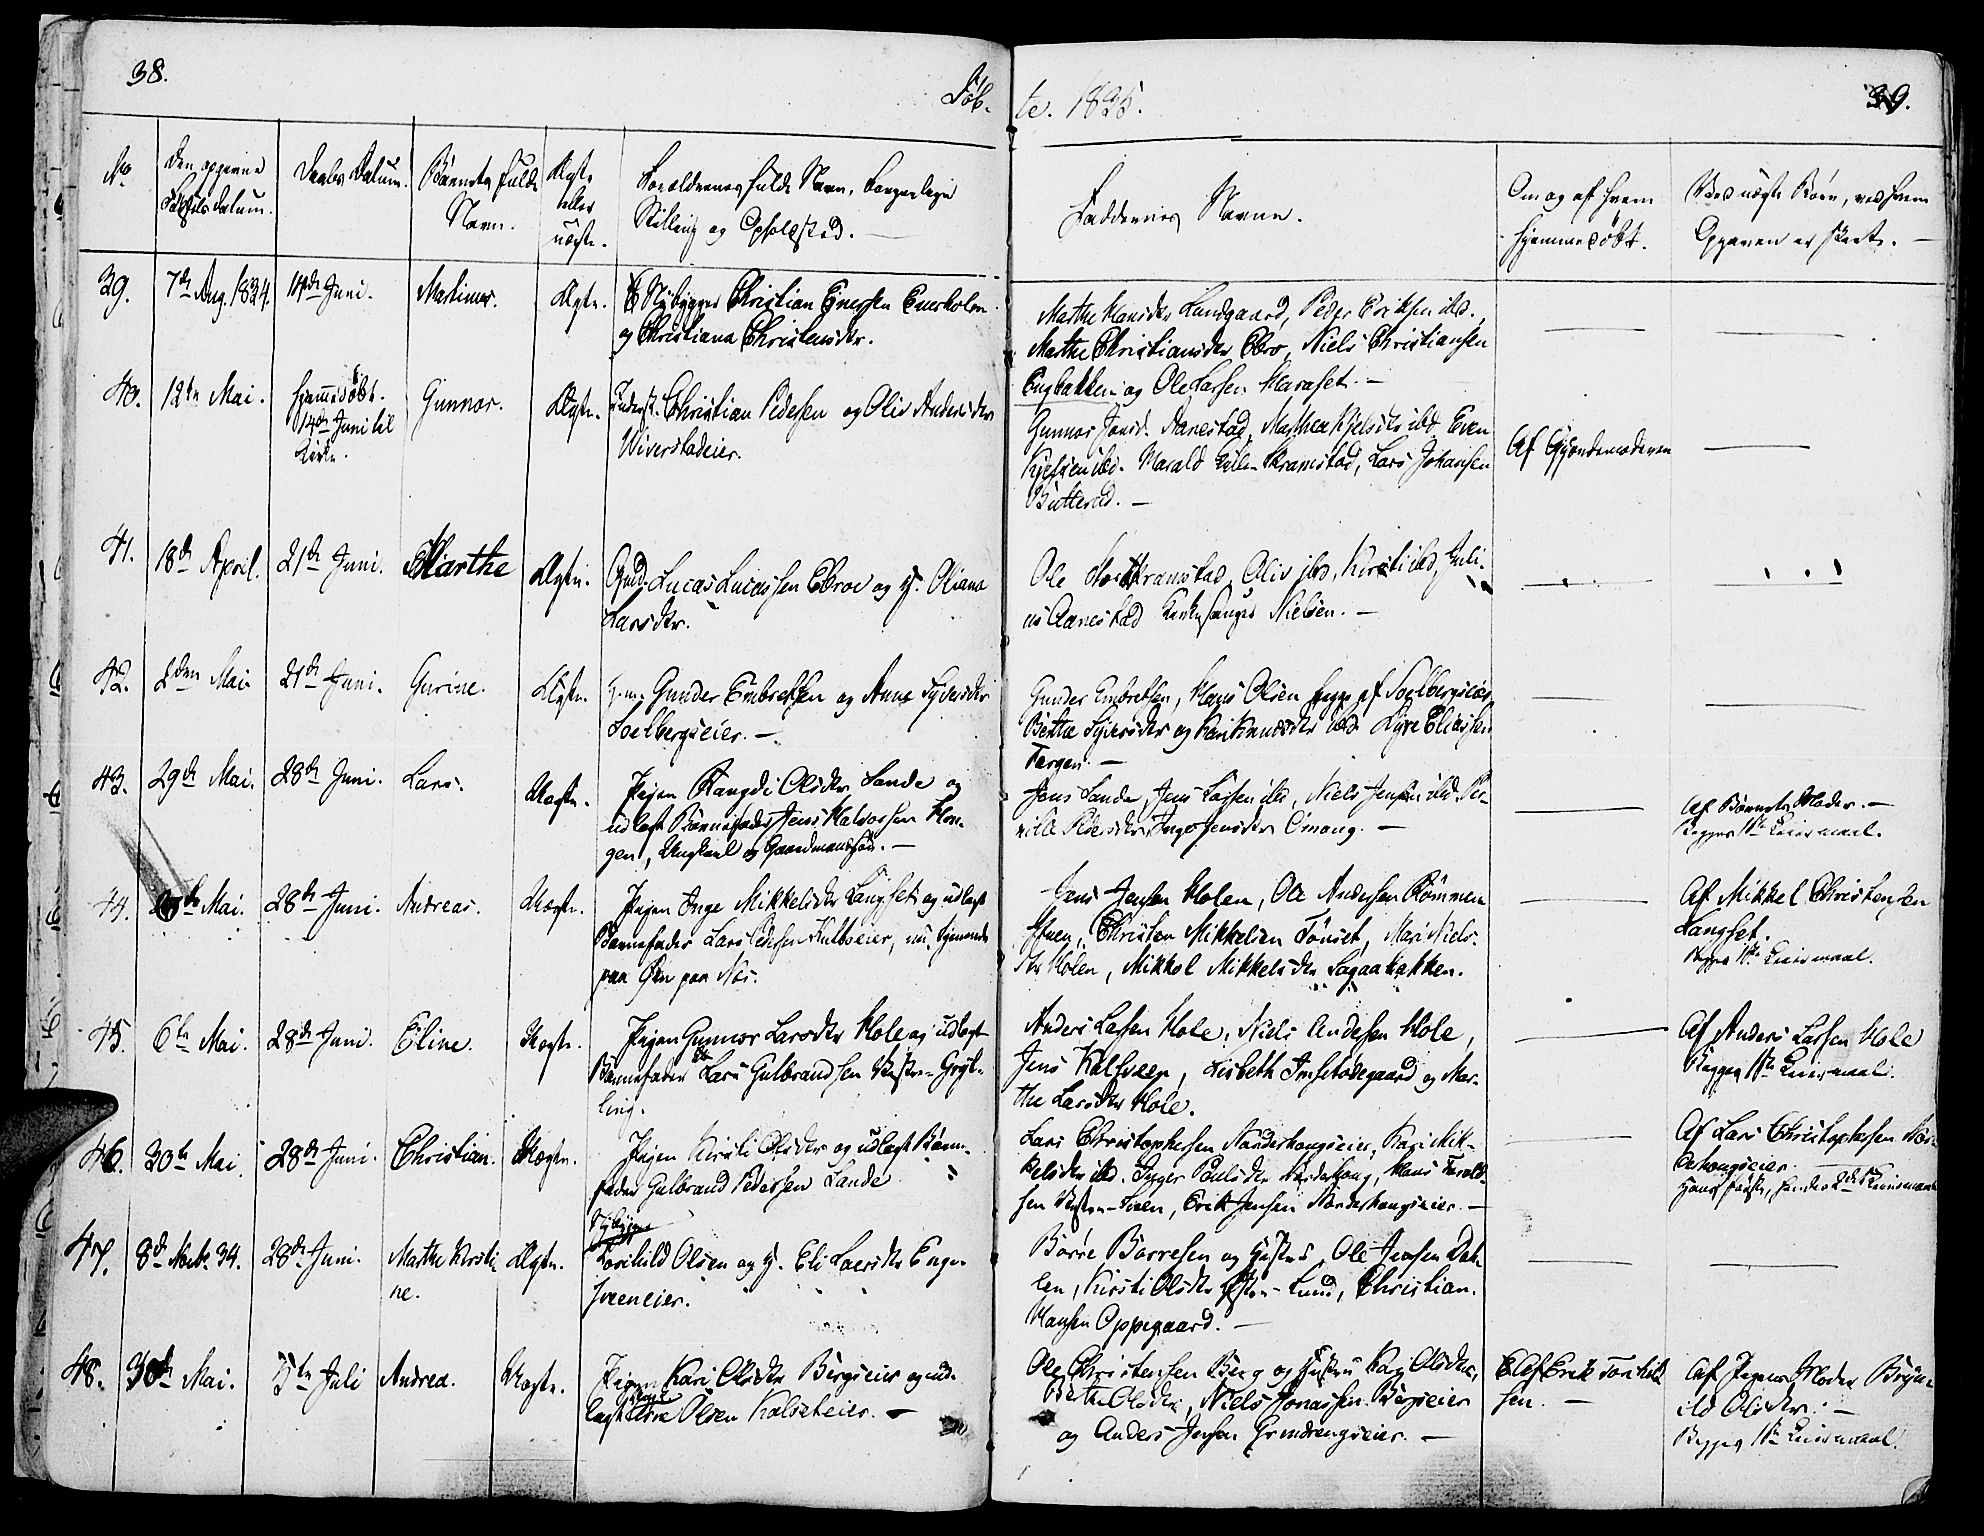 38.
Døb-
te. 1835.
39.
No.
Den opgivne Fødsels Datum.
Daabs Datum.
Barnets fulde Navn.
Ægte eller uægte.
Forældrenes fulde Navn, borgerlige Stilling og Opholdsted.
Faddernes Navne.
Om og af hvem hjemmedøbt.
Ved uægte Børn, ved hvem Opgaven er skeet.
39. 7de Aug. 1834. 14de Juni. Martinus. Ægte. Nybygger Christian Enersen Enerholm
og Christiana Christensdtr.
Marthe Hansdtr Lundgaard, Peder Eriksen ibd.,
Marthe Christiansdtr Ebro, Niels Christiansen
Engbakken og Ole Larsen Haraset.
40. 12te Mai. hjemmedøbt. 14de Juni til Kirke. Gunnor. Ægte. Inderst. Christian Pedersen og Oliv Andersdtr
Wiverstadeier.
Gunnor Jensd. Aanestad, Marthea Kjelsdtr ibd. Even
Kjelsen ibd. Harald Skramstad, Lars Johansen
Butterud.
Af Gjordemoderen
41. 18de April. 21de Juni. Marthe Ægte. Gmd. Lucas Lucassen Ebroe og H. Oliana
Larsdtr.
Ole Skramstad, Oliv ibd, Kirsti ibd, Juli-
us Aanestad Kirkesanger Nielsen.
42. 2den Mai. 21de Juni. Gurine. Ægte. Gunder Embretsen og Anne Syversdtr
Soelbergseier.
Gunder Embretsen, Hans Olsen begge af Soelbergseier,
Berthe Syversdtr og Kari Knudsdtr ibd. Syver Eliassen
Torgen.
43. 29de Mai. 28de Juni. Lars. Uægte. Pigen Rangdi Olsdtr Sande og
udlagt Barnefader Jens Halvorsen Hon-
gen, Ungkarl og Gaardmandssøn.
Jens Sande, Jens Larsen ibd, Niels Jensen ibd. Per-
nille Pedersdtr, Inger Jensdtr Omang.
Af Barnets Moder.
Begges 1ste Leiermaal.
44. Mai. 28de Juni. Andreas. Uægte. Pigen Inge Mikkelsdtr Langset og udlagt
Barnefader Lars Pedersen Kulbseier, nu tjenende
paa Øen paa Næs.
Jens Jensen Holen, Ole Andersen Rømmen
Christen Mikkelsen Tønset, Mari Niels-
dtr Holen, Mikkel Mikkelsdtr Sagaabakken.
Af Mikkel Christensen
Langset.
Begges 1ste Leiermaal.
45. 6te Mai. 28de Juni. Eline. Uægte. Pigen Gunnor Larsdtr Hole og udlagt
Barnefader Lars Gulbrandsen Vestre-Gryt-
ling.
Anders Larsen Hole, Niels Andersen Hole,
Jens Kalsveen, Lisbeth Imsetødegaard og Mar-
the Larsdtr Hole.
Af Anders Larsen Hole
Begges 1ste Leiermaal.
46. 30te Mai 28de Juni. Christian. Uægte. Pigen Kirsti Olsdtr og udlagt Barne-
fader Gulbrand Pedersen Sande.
Lars Christophersen Norderhougseier, Kari Mik-
kelsdtr ibd. Inger Poulsdtr Norderhoug, Hans Torold-
sen Vestre-Lien, Erik Jensen Norderhougseier.
Af Lars Christophersen Nor-
derhougseier.
Hans første, hendes 2det Leiermaal
47. 8de Novbr. 34. 28de Juni. Marthe Kirsti-
ne. Ægte. Nybygger
Torchild Olsen og H. Eli Larsdtr Enge-
sveeneier.
Børre Børresen og Hustru, Ole Jensen Dah-
len, Kirsti Olsdtr Østre-Lund, Christian
Hansen Oppegaard.
48. 30te Mai. 5te Juli Andrea. Uægte. Pigen Kari Olsdtr Bergseier og ud-
lagt Arne Olsen Kolseteier.
Ole Christensen Berg og Hustru Kari Olsdtr,
Berthe Olsdtr, Niels Jonassen Bergseier
og Anders Jensen Grindrengseier.
Af Erik Torchild-
sen.
Af Pigens Moder Bryn-
ild Olsdtr.
Begges 1ste Leiermaal.